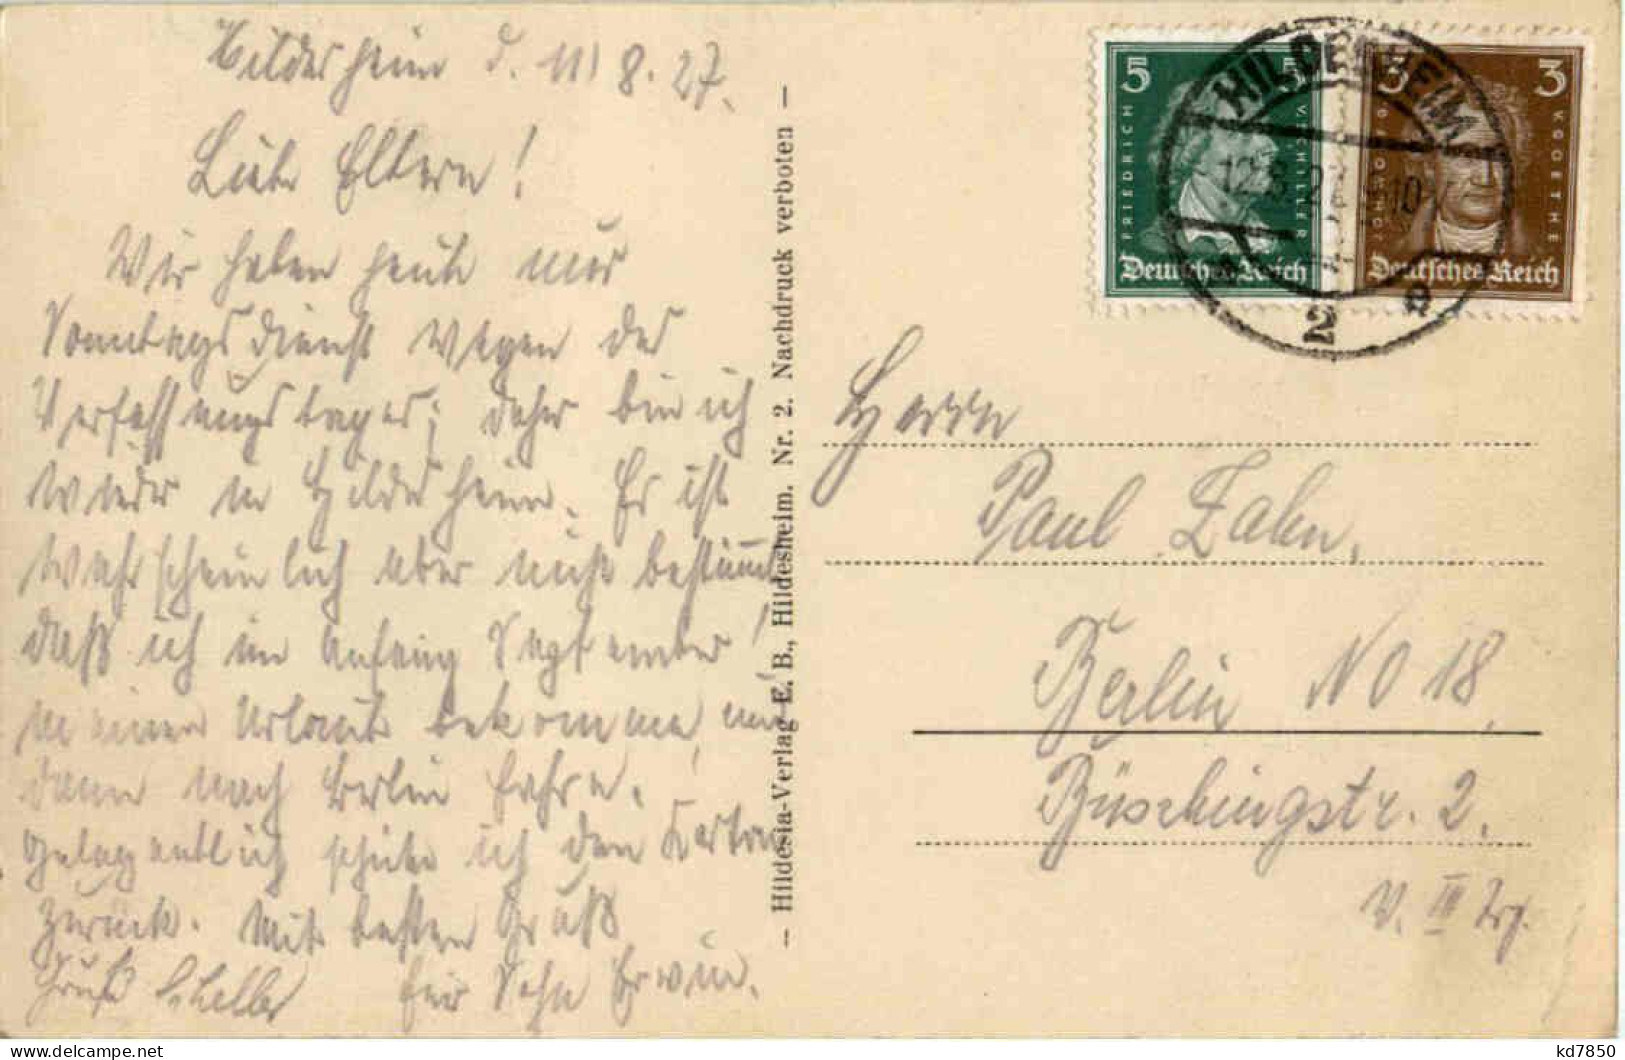 Hildesheim d. 11/8.27.
Liebe Eltern!
Wir haben heute nur
Sonntagsdienst wegen des
Verfassungstages; daher bin ich
wieder in Hildesheim. Es ist
wahrscheinlich aber nicht bestimmt
daß ich im Anfang September
meinen Urlaub bekomme, und
dann nach Berlin fahre.
Gelegentlich schicke ich den Karton
zurück. Mit besten Gruß
Gruß
Sohn Erwin.
- Hildesia-Verlag E. B., Hildesheim. Nr. 2. Nachdruck verboten -
5 5
FRIEDRICH V. SCHILLER
Deutsches Reich
3 3
V. GOETHE
Deutsches Reich
HILDESHEIM
12.8.27
2
e
Herrn
Paul Zahn,
Berlin NO 18,
Büschingstr. 2.
v. III Trp.
kd7850